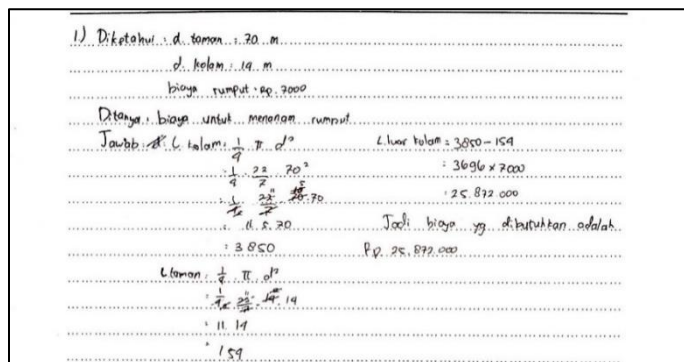 1.) Diketahui : d. taman : 70 m
d. kolam : 14 m
biaya rumput : Rp. 7000
Ditanya : biaya untuk menanam rumput
Jawab : L kolam : 1/4 π d²
: 1/4 . 22/7 . 70²
: 1/4 . 22/7 . 70 . 70
: 11 . 5 . 70
: 3850
L taman : 1/4 . π d²
: 1/4 . 22/7 . 14 . 14
: 11 . 14
: 154
L. luar kolam = 3850 - 154
: 3696 x 7000
: 25.872.000
Jadi biaya yg dibutuhkan adalah
Rp. 25.872.000